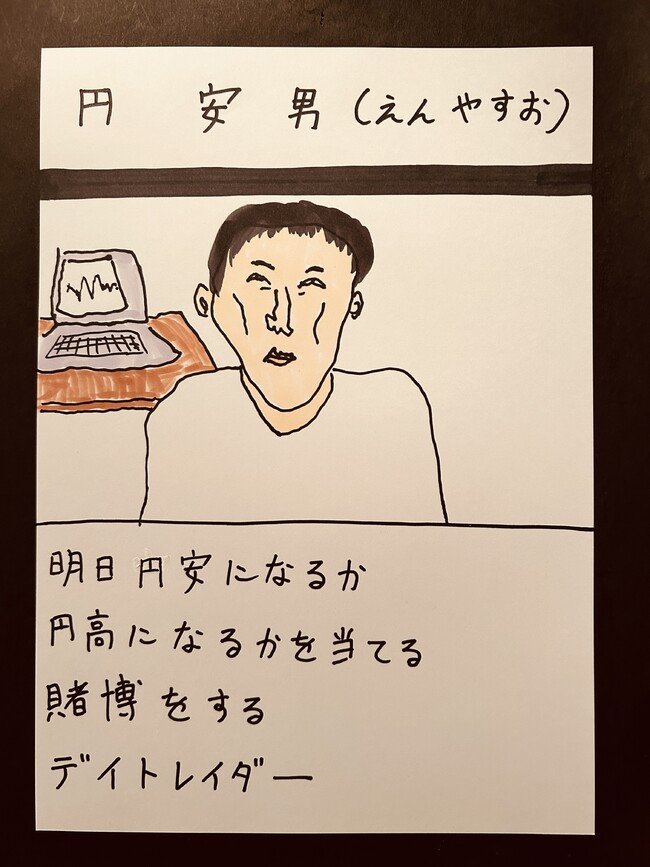 円 安男（えんやすお）
明日円安になるか
円高になるかを当てる
賭博をする
デイトレイダー